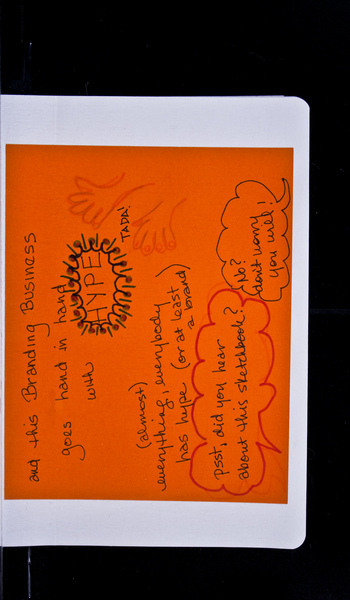 and this Branding Business
goes hand in hand
with
HYPE!
TADA!
(almost)
everything, everybody
has hype (or at least
a brand)
psst, did you hear
about this sketchbook?
No?
don't worry
you will!